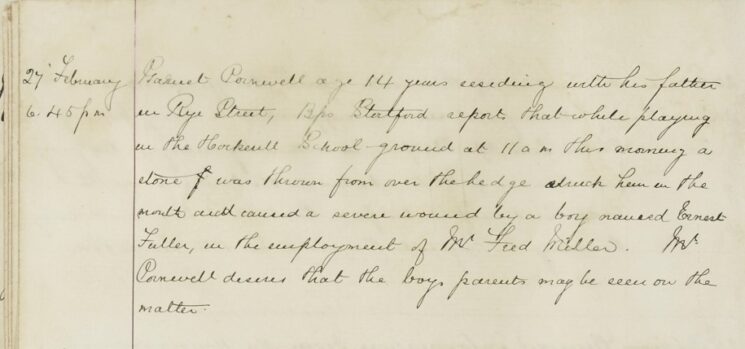 27 February
6.45 pm
Barnet Cornwell age 14 years residing with his father
in Rye Street, Bps Stortford reports that while playing
in the Hockerill School-ground at 11 am this morning a
stone was thrown from over the hedge struck him in the
mouth and caused a severe wound by a boy named Ernest
Fuller, in the employment of Mr Fred Miller. Mr
Cornwell desires that the boys parents may be seen on the
matter.